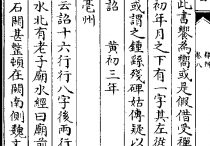 卷八
此書饗為嚮或是假借受禪
初年月之下有一字其左從
或謂之鍾繇殘碑姑傳疑以
詔 黃初三年
云詔十六行行八字後兩行
亳州
水北有老子廟水經曰廟前
石闕甚整頓在闕南側魏文